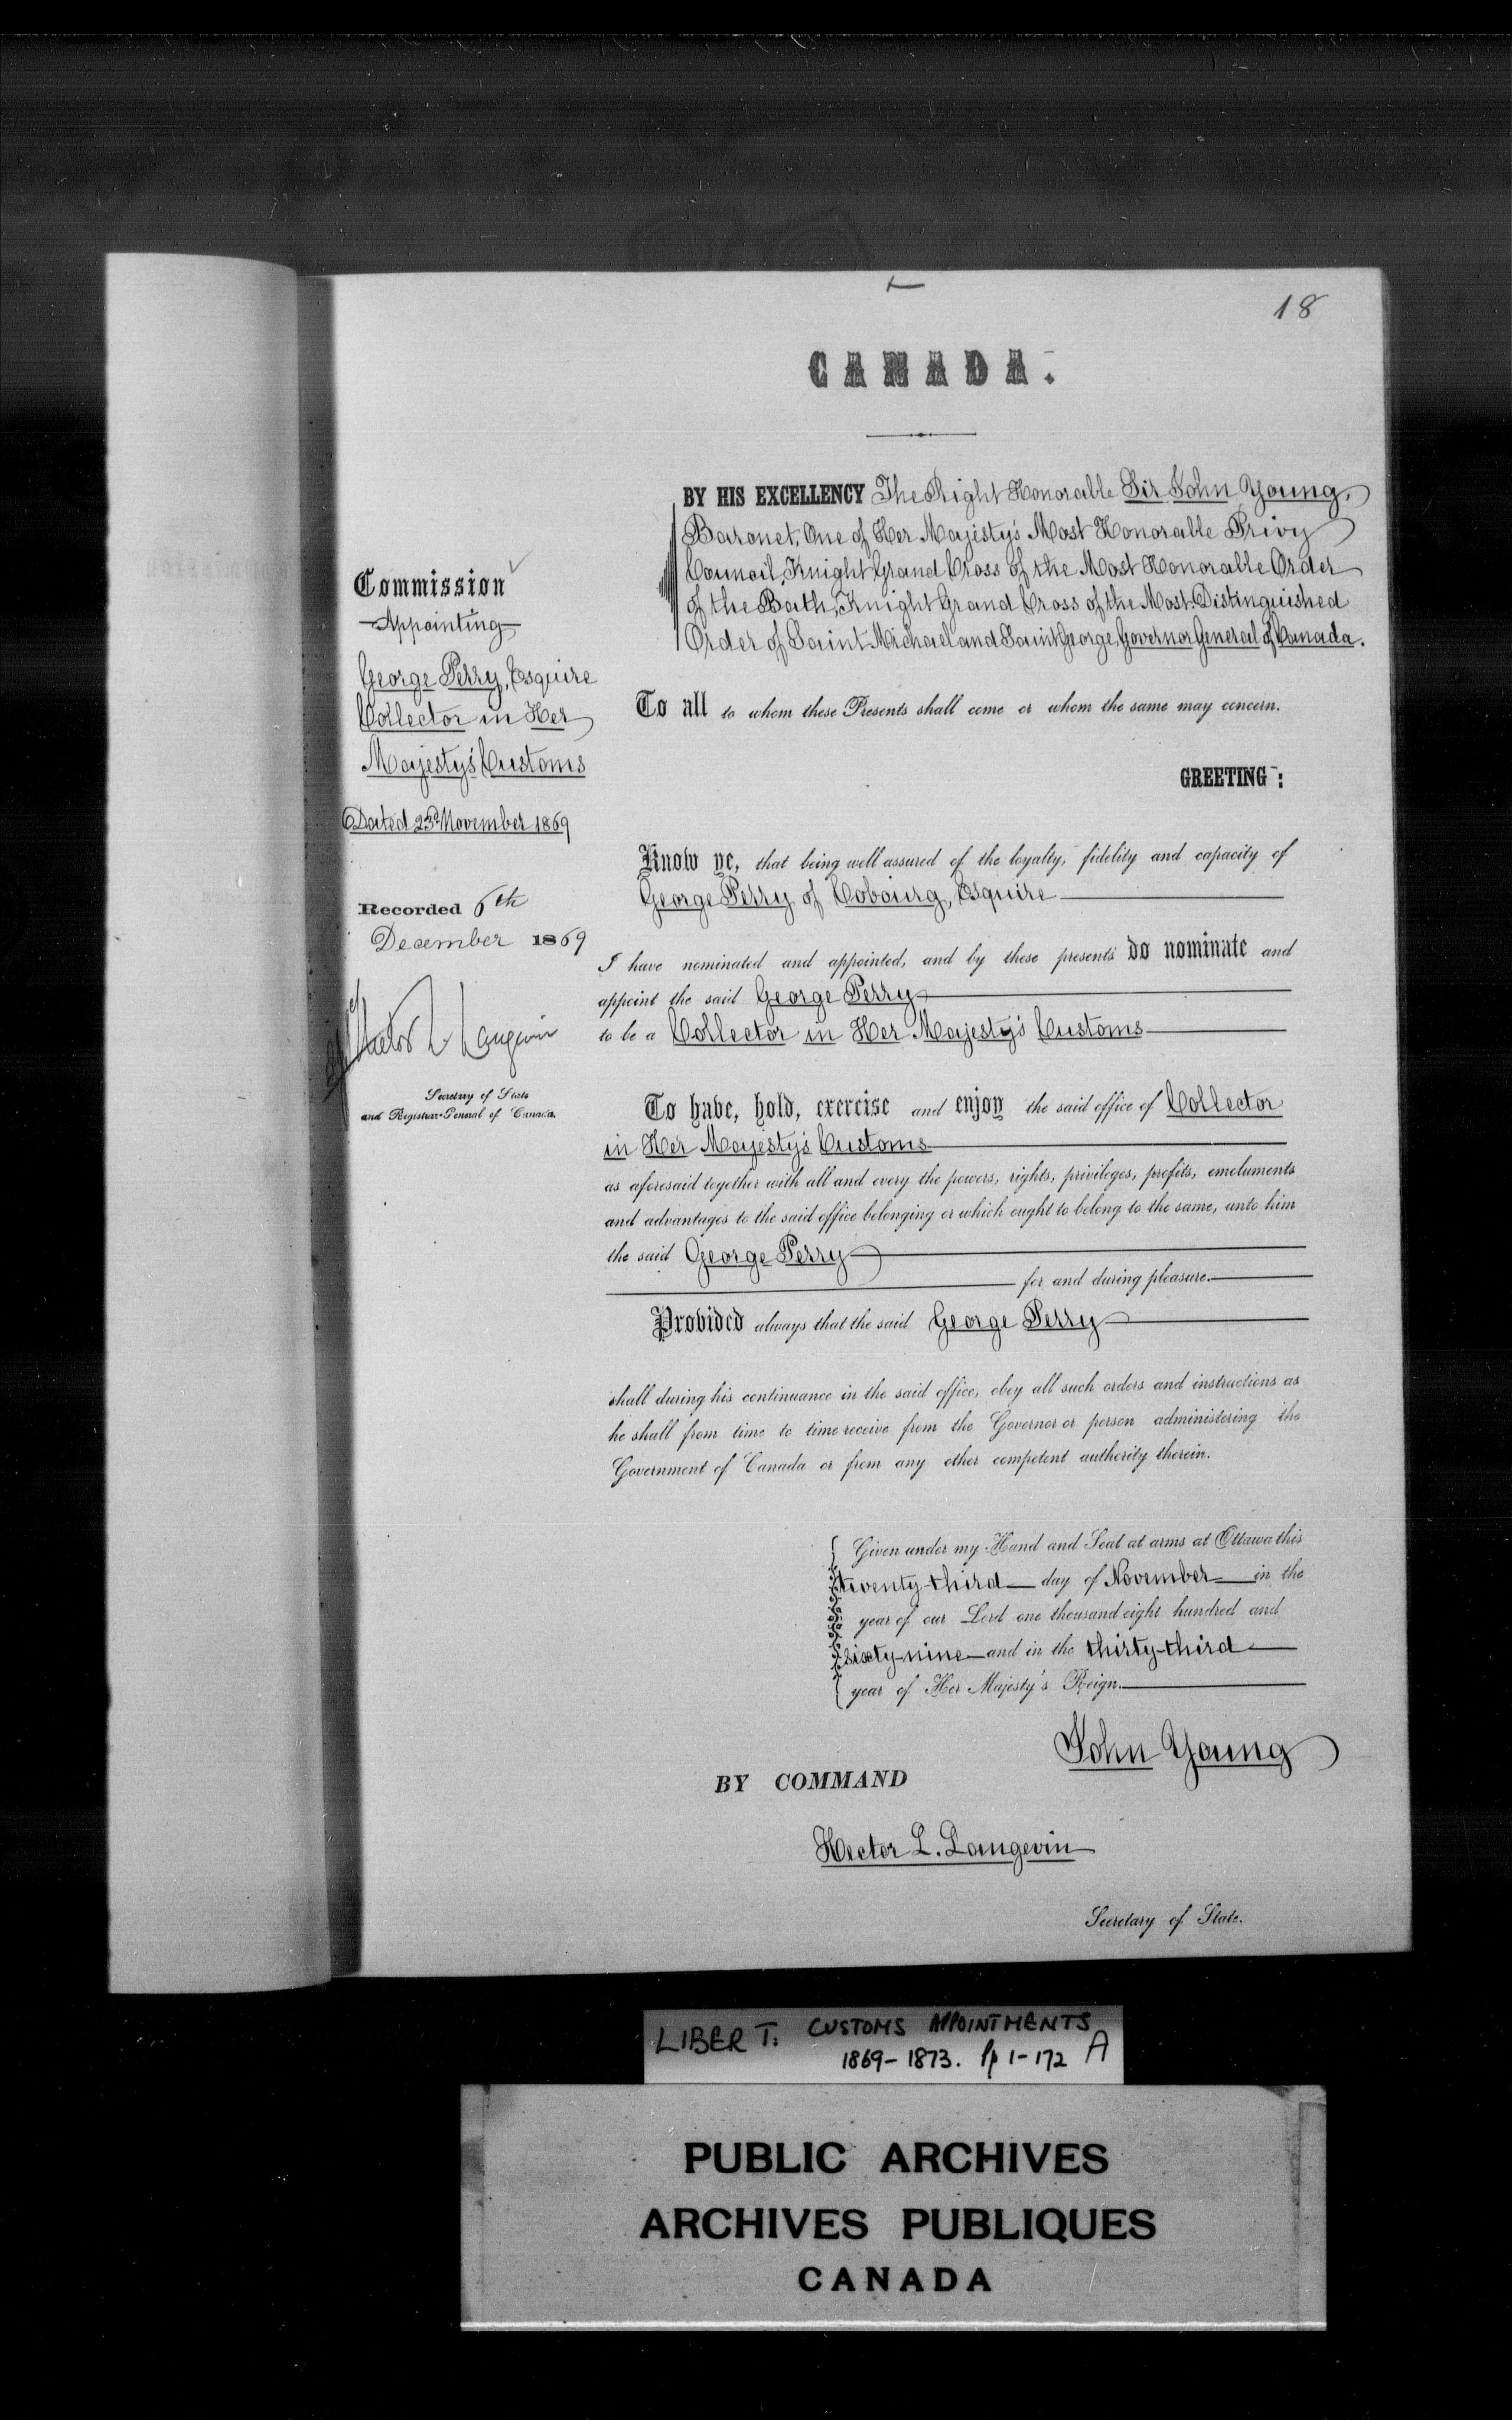 18
CANADA.
BY HIS EXCELLENCY The Right Honorable Sir John Young,
Baronet, One of Her Majesty's Most Honorable Privy
Council, Knight Grand Cross of the Most Honorable Order
of the Bath, Knight Grand Cross of the Most Distinguished
Order of Saint Michael and Saint George, Governor General of Canada.
Commission
Appointing
George Perry, Esquire
Collector in Her
Majesty's Customs
Dated 23rd November 1869
Recorded 6th
December 1869
Hector L Langevin
Secretary of State
and Registrar-General of Canada.
To all to whom these Presents shall come or whom the same may concern.
GREETING:
Know ye, that being well assured of the loyalty, fidelity and capacity of
George Perry of Cobourg, Esquire
I have nominated and appointed, and by these presents do nominate and
appoint the said George Perry
to be a Collector in Her Majesty's Customs
To have, hold, exercise and enjoy the said office of Collector
in Her Majesty's Customs
as aforesaid together with all and every the powers, rights, privileges, profits, emoluments
and advantages to the said office belonging or which ought to belong to the same, unto him
the said George Perry
for and during pleasure.
Provided always that the said George Perry
shall during his continuance in the said office, obey all such orders and instructions as
he shall from time to time receive from the Governor or person administering the
Government of Canada or from any other competent authority therein.
Given under my Hand and Seal at arms at Ottawa this
twenty-third day of November in the
year of our Lord one thousand eight hundred and
sixty-nine and in the thirty-third
year of Her Majesty's Reign.
John Young
BY COMMAND
Hector L. Langevin
Secretary of State.
LIBER T: CUSTOMS APPOINTMENTS
1869-1873. Pp 1-172 A
PUBLIC ARCHIVES
ARCHIVES PUBLIQUES
CANADA